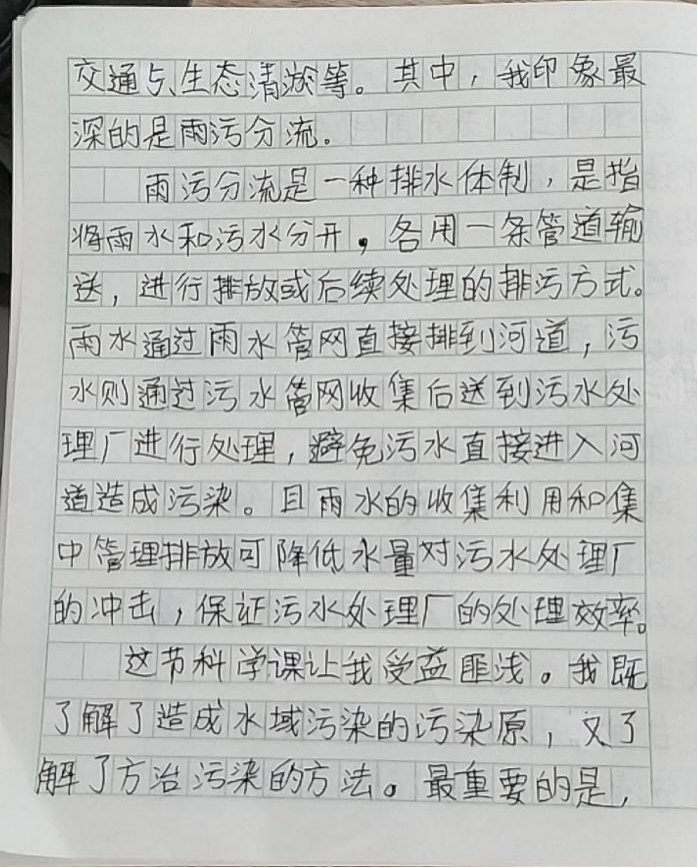 交通与生态清淤等。其中，我印象最
深的是雨污分流。
雨污分流是一种排水体制，是指
将雨水和污水分开，各用一条管道输
送，进行排放或后续处理的排污方式。
雨水通过雨水管网直接排到河道，污
水则通过污水管网收集后送到污水处
理厂进行处理，避免污水直接进入河
道造成污染。且雨水的收集利用和集
中管理排放可降低水量对污水处理厂
的冲击，保证污水处理厂的处理效率。
这节科学课让我受益匪浅。我既
了解了造成水域污染的污染原，又了
解了方治污染的方法。最重要的是，